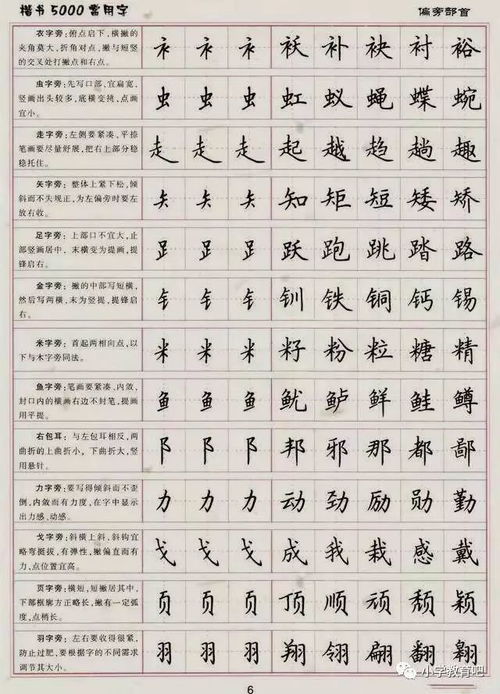 楷书5000常用字
偏旁部首
衣字旁:俯点启下,横撇的
夹角莫大,折角对点,撇与短竖
的交叉处打撇点和右点。
衤 衤 衤 袄 补 袂 衬 裕
虫字旁:先写口部,宜扁宽,
竖画出头较多,底横变挑,点画
宜小。
虫 虫 虫 虹 蚁 蝇 蝶 蜿
走字旁:左侧要紧凑,平捺
笔画要尽量舒展,把右上部分稳
稳托住。
走 走 走 起 越 趋 趟 趣
矢字旁:整体上紧下松,倾
斜而不失规正,为左偏旁时要左
放右收。
矢 矢 矢 知 矩 短 矮 矫
足字旁:上部口不宜大,止
部竖画居中,末横变为提画,提
锋启右。
𧾷 𧾷 𧾷 跃 跑 跳 踏 路
金字旁:撇的中部写短横,
然后写两横,末为竖提,提锋启
右。
钅 钅 钅 钏 铁 铜 钙 锡
米字旁:首起两相向点,以
下与木字旁同法。
米 米 米 籽 粉 粒 糖 精
鱼字旁:笔画要紧凑,内敛,
封口内的横画右边不封笔,提画
用平提。
鱼 鱼 鱼 鱿 鲈 鲜 鲑 鳟
右包耳:与左包耳相反,两
曲折的上曲折小,下曲折大,竖
用悬针。
阝 阝 阝 邦 邪 那 都 鄙
力字旁:要写得倾斜而不歪
倒,内敛而有力度,在字中显示
出力感,动感。
力 力 力 动 劲 励 勋 勤
戈字旁:斜横上斜,斜钩宜
略弯挺拔,有弹性,撇偏直而有
力,点位置宜高。
戈 戈 戈 成 我 栽 感 戴
页字旁:横短,短撇居其中,
下部框廓方正略长,撇有一定弧
度,点稍长。
页 页 页 顶 顺 顽 颓 颖
羽字旁:左右要收得很紧,
防止过肥,要根据字的不同需求
调节其大小。
羽 羽 羽 翔 翎 翩 翻 翱
6
小学教育吧